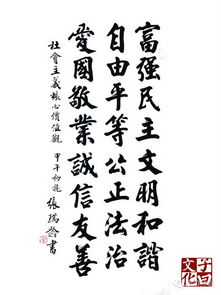 富强民主文明和諧
自由平等公正法治
愛國敬業誠信友善
社會主義核心價值觀
甲午初春
張瑞齡書
子曰
文化